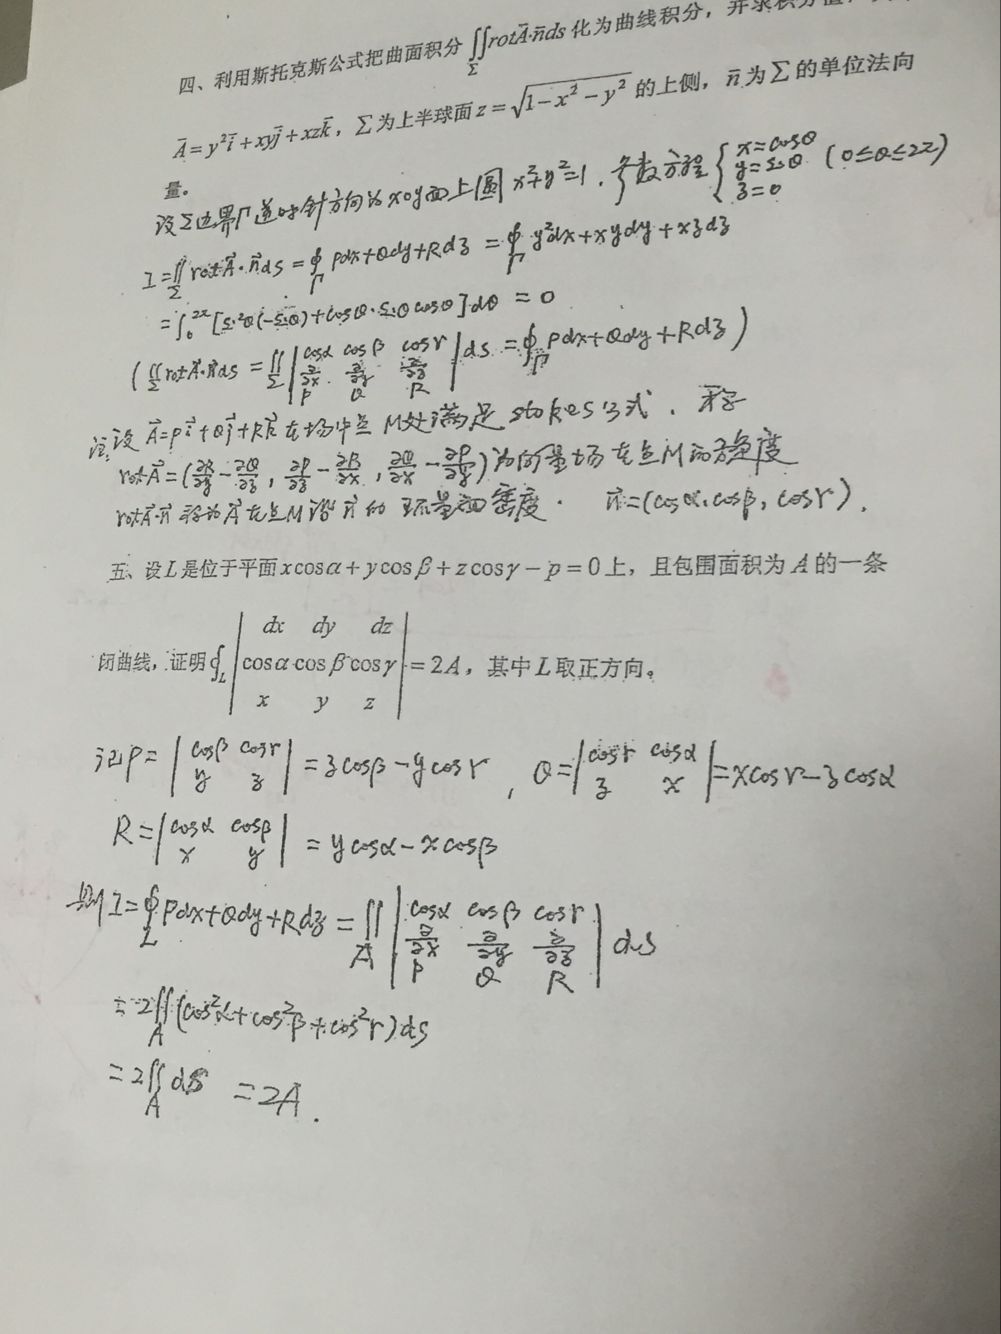 四、利用斯托克斯公式把曲面积分∬_Σ rotA⃗·n⃗ds化为曲线积分,并求积分值,
A⃗=y²i⃗+xyj⃗+xzk⃗,Σ为上半球面z=√(1-x²-y²)的上侧,n⃗为Σ的单位法向
量。
设Σ边界Γ逆时针方向为xoy面上圆x²+y²=1.参数方程{x=cosθ y=sinθ z=0 (0≤θ≤2π)
I=∬_Σ rotA⃗·n⃗ds=∮_Γ Pdx+Qdy+Rdz=∮_Γ y²dx+xydy+xzdz
=∫₀^2π[sin²θ(-sinθ)+cosθ·sinθcosθ]dθ=0
(∬_Σ rotA⃗·n⃗ds=∬_Σ |cosα cosβ cosγ; ∂/∂x ∂/∂y ∂/∂z; P Q R|ds=∮_Γ Pdx+Qdy+Rdz)
注:设A⃗=Pi⃗+Qj⃗+Rk⃗在场中点M处满足stokes公式.称
rotA⃗=(∂R/∂y-∂Q/∂z,∂P/∂z-∂R/∂x,∂Q/∂x-∂P/∂y)为向量场在点M的旋度
rotA⃗·n⃗称为A⃗在点M沿n⃗的环量面密度. n⃗=(cosα,cosβ,cosγ).
五、设L是位于平面xcosα+ycosβ+zcosγ-p=0上,且包围面积为A的一条
闭曲线,证明∮_L |dx dy dz; cosα cosβ cosγ; x y z|=2A,其中L取正方向。
记P=|cosβ cosγ; y z|=zcosβ-ycosγ,Q=|cosγ cosα; z x|=xcosγ-zcosα
R=|cosα cosβ; x y|=ycosα-xcosβ
则I=∮_L Pdx+Qdy+Rdz=∬_A |cosα cosβ cosγ; ∂/∂x ∂/∂y ∂/∂z; P Q R|ds
=2∬_A(cos²α+cos²β+cos²γ)ds
=2∬_A ds=2A.